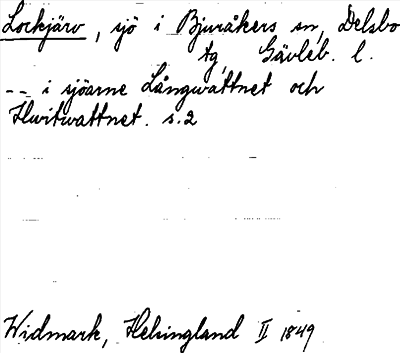 Lockjärv, sjö i Bjuråkers sn, Delsbo
tg, Gävleb. l.
-- i sjöarne Långwattnet och
Hwitwattnet. s. 2
Widmark, Helsingland II 1849